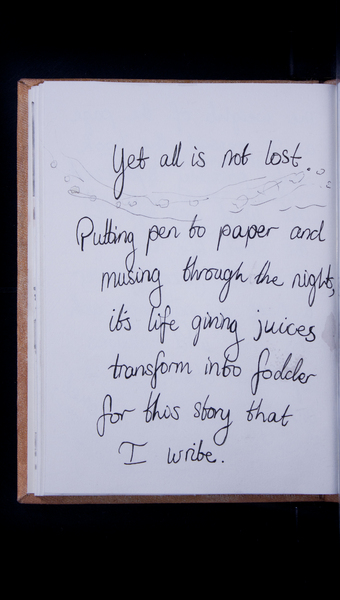 Yet all is not lost.
Putting pen to paper and
musing through the night,
it's life giving juices
transform into fodder
for this story that
I write.